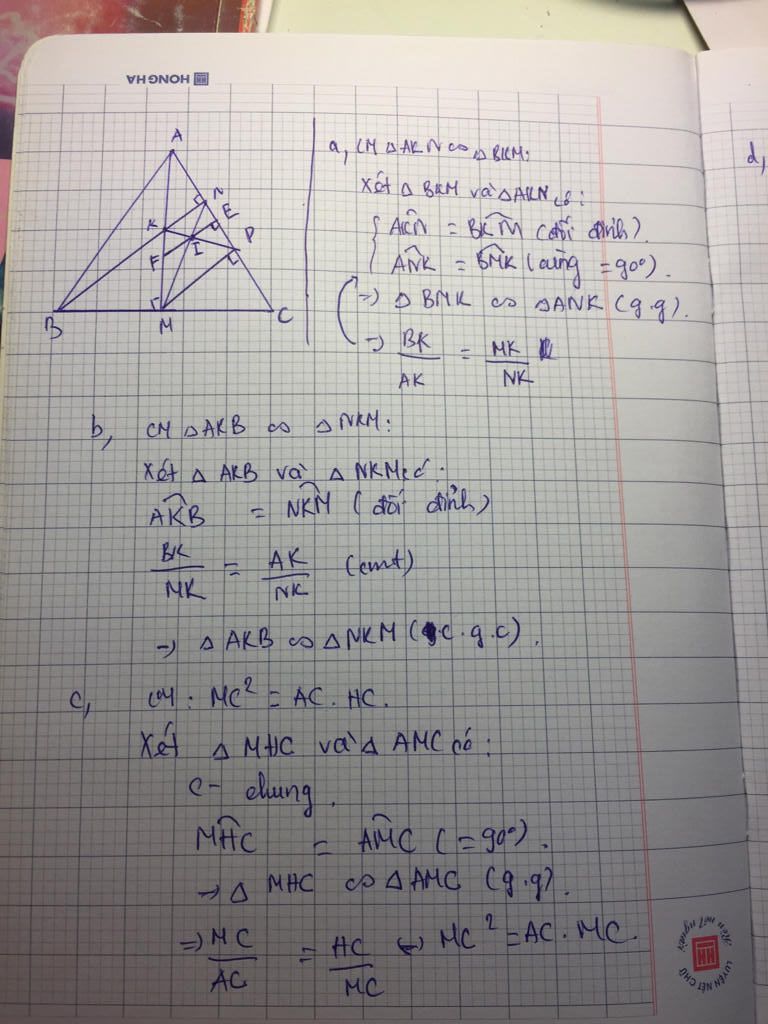 HONG HA
A
N
E
K
P
F
I
B
M
C
a, CM △AKN ∽ △BKM:
Xét △BKM và △AKN có:
AKN = BKM (đối đỉnh).
ANK = BMK (cùng = 90°).
=> △BMK ∽ △ANK (g.g).
=> BK/AK = MK/NK
d,
b, CM △AKB ∽ △NKM:
Xét △AKB và △NKM có:
AKB = NKM (đối đỉnh)
BK/MK = AK/NK (cmt)
=> △AKB ∽ △NKM (c.g.c).
c, CM: MC² = AC.HC.
Xét △MHC và △AMC có:
C- chung.
MHC = AMC (=90°).
=> △MHC ∽ △AMC (g.g).
=> MC/AC = HC/MC <=> MC² = AC.MC.
LUYỆN NÉT CHỮ
Rèn nết người